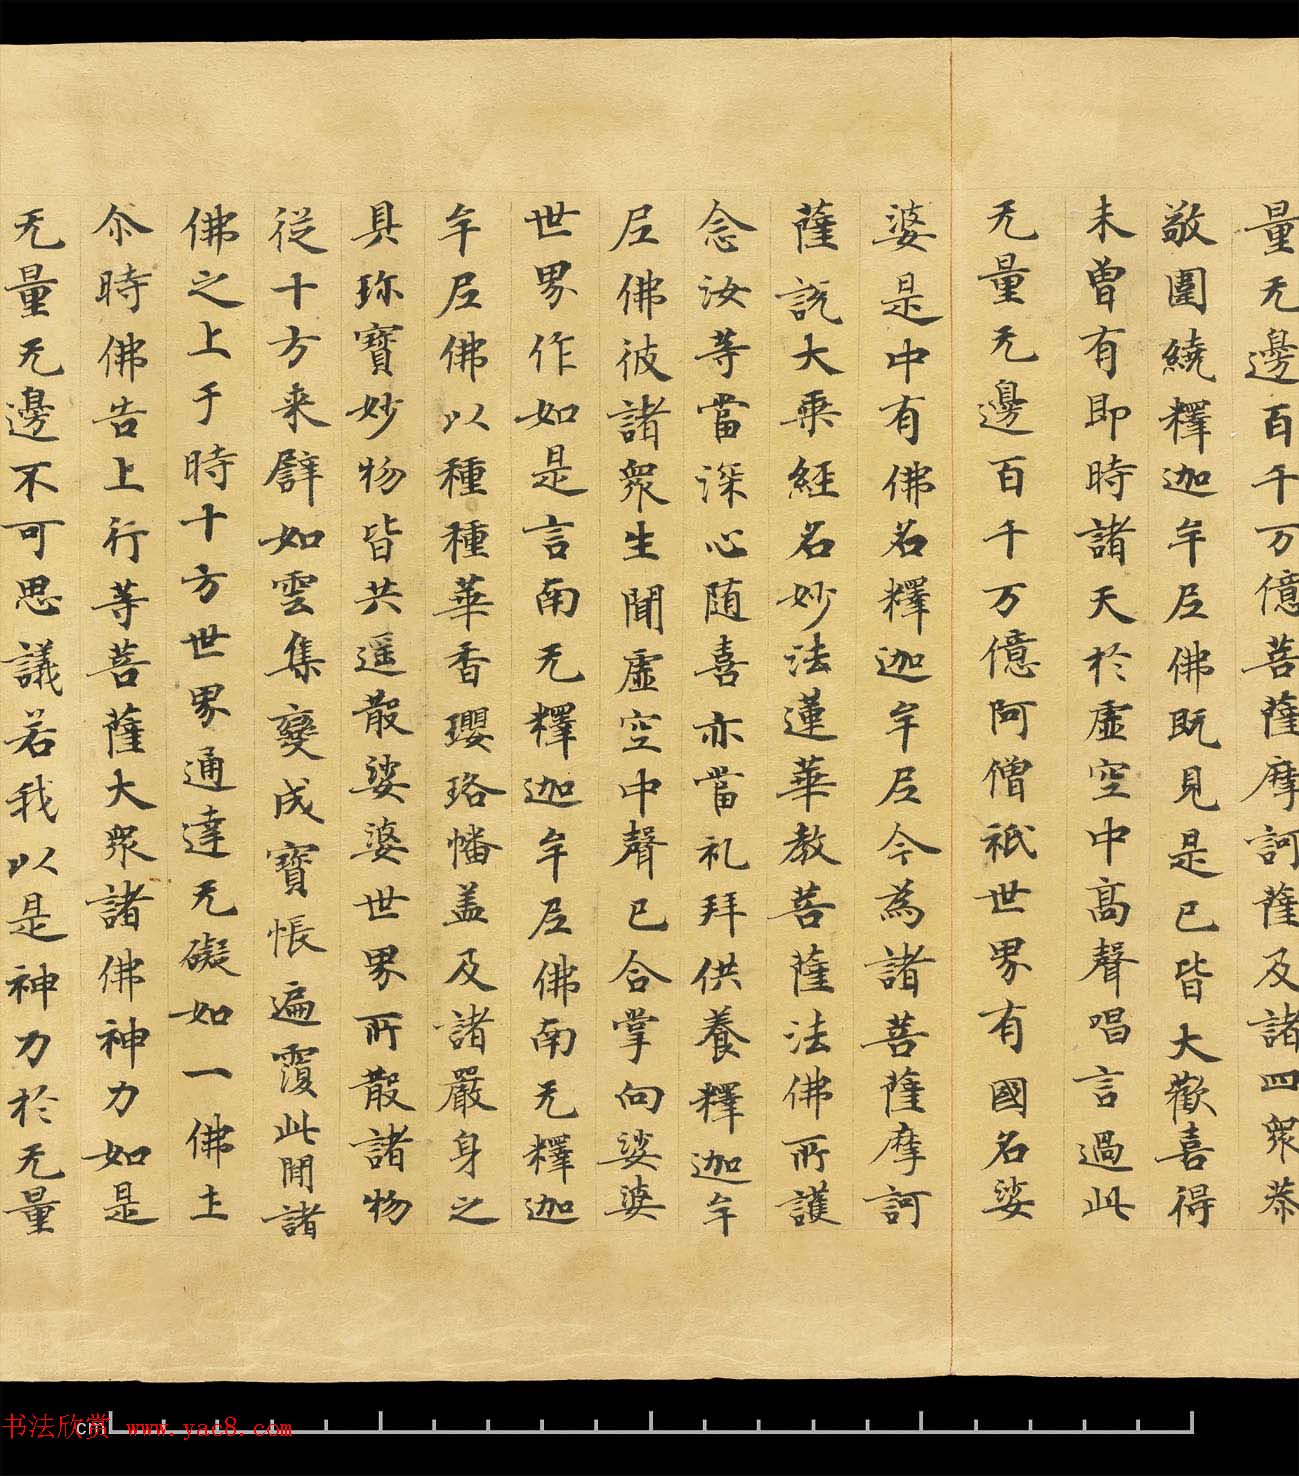 量无邊百千万億菩薩摩訶薩及諸四眾恭
敬圍繞釋迦牟尼佛既見是已皆大歡喜得
未曾有即時諸天於虛空中高聲唱言過此
无量无邊百千万億阿僧祇世界有國名娑
婆是中有佛名釋迦牟尼今為諸菩薩摩訶
薩說大乘經名妙法蓮華教菩薩法佛所護
念汝等當深心随喜亦當礼拜供養釋迦牟
尼佛彼諸眾生聞虛空中聲已合掌向娑婆
世界作如是言南无釋迦牟尼佛南无釋迦
牟尼佛以種種華香瓔珞幡盖及諸嚴身之
具珎寶妙物皆共遥散娑婆世界所散諸物
從十方来譬如雲集變成寶帳遍覆此閒諸
佛之上于時十方世界通達无礙如一佛土
尒時佛告上行等菩薩大眾諸佛神力如是
无量无邊不可思議若我以是神力於无量
书法欣赏 www.yac8.com
cm